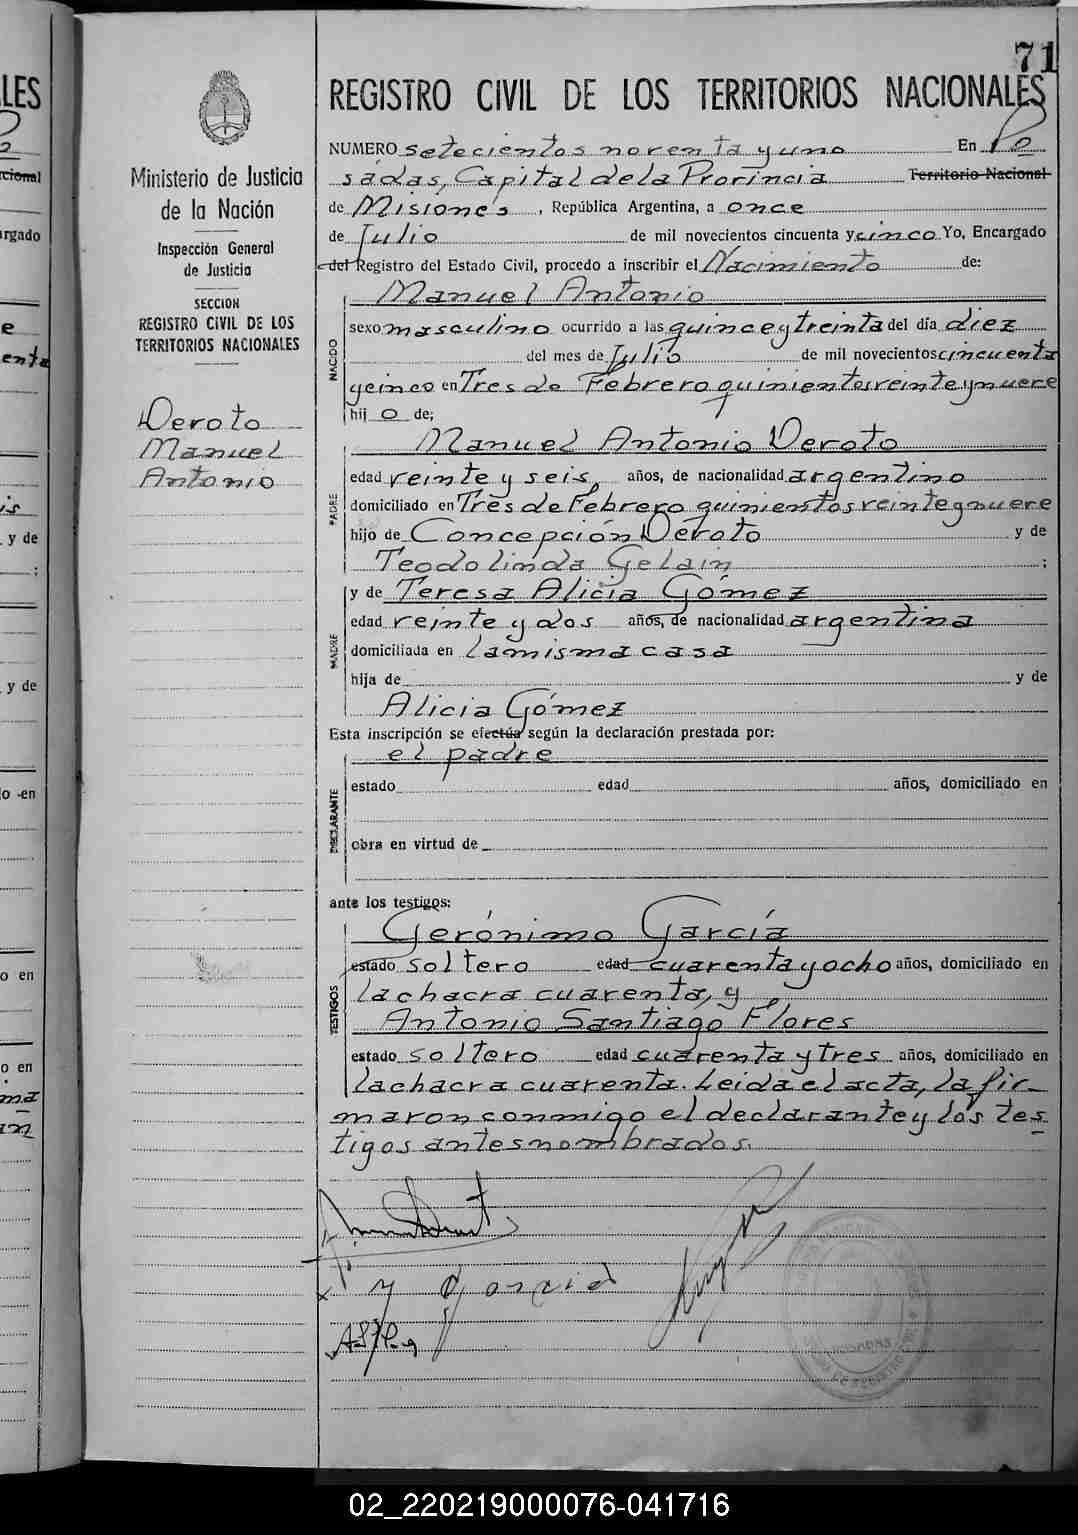 71
REGISTRO CIVIL DE LOS TERRITORIOS NACIONALES
NUMERO setecientos noventa y uno En Po
sadas, Capital de la Provincia Territorio Nacional
de Misiones, República Argentina, a once
de Julio de mil novecientos cincuenta y cinco Yo, Encargado
del Registro del Estado Civil, procedo a inscribir el Nacimiento de:
Manuel Antonio
NACIDO
sexo masculino ocurrido a las quince y treinta del día diez
del mes de Julio de mil novecientos cincuenta
y cinco en Tres de Febrero quinientos veinte y nueve
hij o de;
Manuel Antonio Deroto
PADRE
edad veinte y seis, años, de nacionalidad argentino
domiciliado en Tres de Febrero quinientos veinte y nueve
hijo de Concepción Deroto y de
Teodolinda Gelain ;
y de Teresa Alicia Gómez
MADRE
edad veinte y dos años, de nacionalidad argentina
domiciliada en la misma casa
hija de y de
Alicia Gómez
Esta inscripción se efectúa según la declaración prestada por:
el padre
DECLARANTE
estado edad años, domiciliado en
obra en virtud de
ante los testigos:
Gerónimo García
TESTIGOS
estado soltero edad cuarenta y ocho años, domiciliado en
la chacra cuarenta, y
Antonio Santiago Flores
estado soltero edad cuarenta y tres años, domiciliado en
la chacra cuarenta. Leída el acta, la fir-
maron conmigo el declarante y los tes
tigos antes nombrados.
Ministerio de Justicia
de la Nación
Inspección General
de Justicia
SECCION
REGISTRO CIVIL DE LOS
TERRITORIOS NACIONALES
Deroto
Manuel
Antonio
02_220219000076-041716